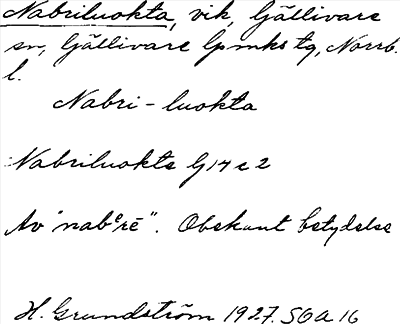 Nabriluokta, vik, Gällivare
sn, Gällivare lpmks tg, Norrb.
l.
Nabri-luokta
Nabriluokta G 14 c 2
Av "nabᵉrē". Obekant betydelse
H. Grundström 1927. SOA 16